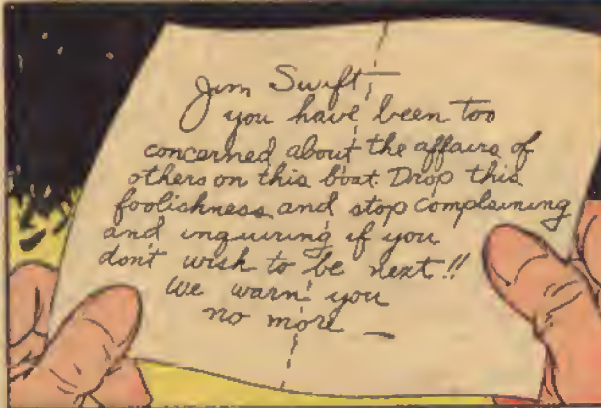 Jim Swift,—
you have been too
concerned about the affairs of
others on this boat. Drop this
foolishness and stop complaining
and inquiring if you
don't wish to be next!!
We warn you
no more —